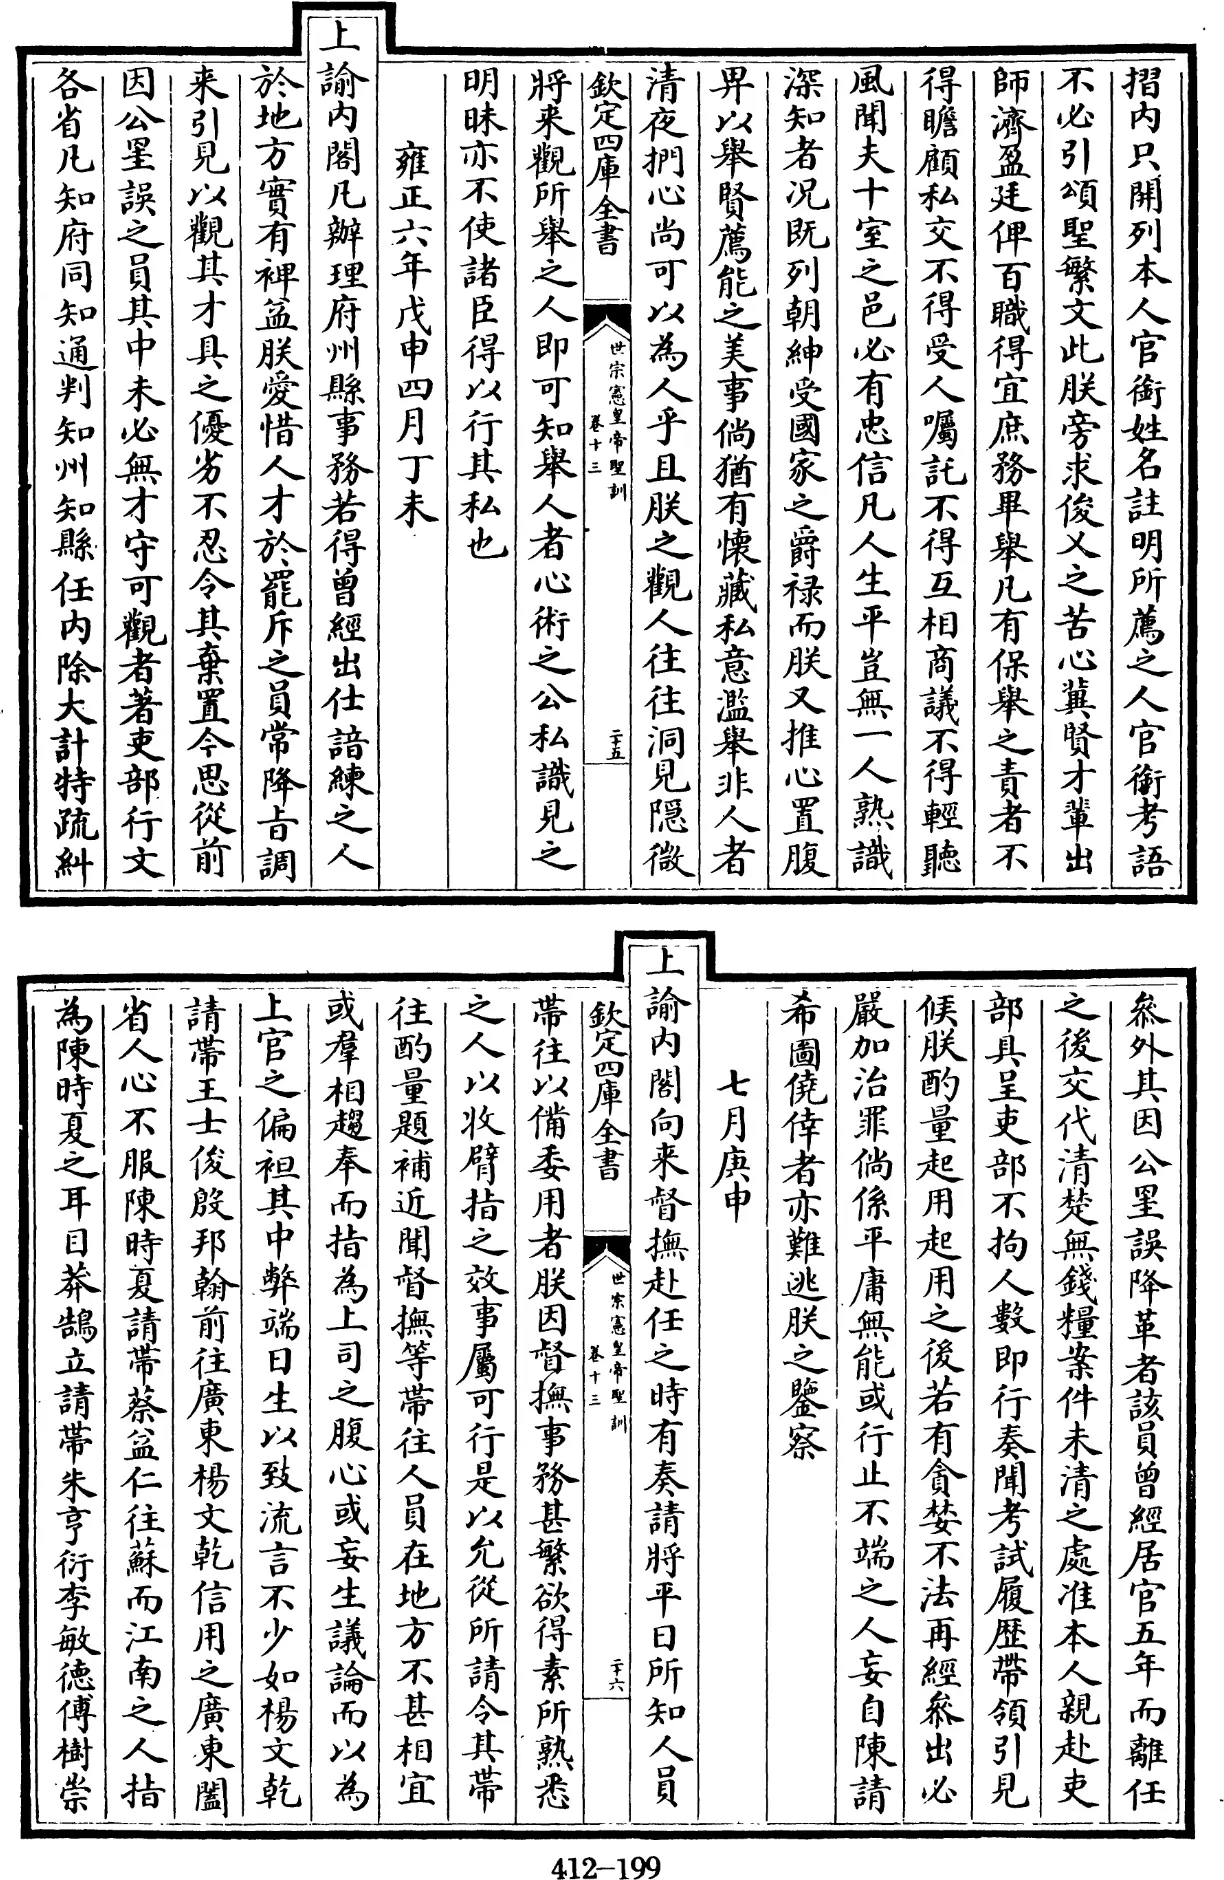 摺内只開列本人官銜姓名註明所薦之人官銜考語
不必引頌聖繁文此朕旁求俊乂之苦心冀賢才輩出
師濟盈廷俾百職得宜庶務畢舉凡有保舉之責者不
得瞻顧私交不得受人囑託不得互相商議不得輕聽
風聞夫十室之邑必有忠信凡人生平豈無一人熟識
深知者况既列朝紳受國家之爵禄而朕又推心置腹
畀以舉賢薦能之美事倘猶有懐藏私意濫舉非人者
清夜捫心尚可以為人乎且朕之觀人往往洞見隠微
欽定四庫全書
世宗憲皇帝聖訓
卷十三
二十五
將来觀所舉之人即可知舉人者心術之公私識見之
明昧亦不使諸臣得以行其私也
雍正六年戊申四月丁未
上諭内閣凡辦理府州縣事務若得曾經出仕諳練之人
於地方實有裨益朕愛惜人才於罷斥之員常降㫖調
来引見以觀其才具之優劣不忍令其棄置今思從前
因公罣誤之員其中未必無才守可觀者著吏部行文
各省凡知府同知通判知州知縣任内除大計特疏糾
叅外其因公罣誤降革者該員曾經居官五年而離任
之後交代清楚無錢糧案件未清之處准本人親赴吏
部具呈吏部不拘人數即行奏聞考試履歴帶領引見
候朕酌量起用起用之後若有貪婪不法再經叅出必
嚴加治罪倘係平庸無能或行止不端之人妄自陳請
希圖僥倖者亦難逃朕之鑒察
七月庚申
上諭内閣向来督撫赴任之時有奏請將平日所知人員
欽定四庫全書
世宗憲皇帝聖訓
卷十三
二十六
帶往以備委用者朕因督撫事務甚繁欲得素所熟悉
之人以收臂指之效事屬可行是以允從所請令其帶
往酌量題補近聞督撫等帶往人員在地方不甚相宜
或羣相趨奉而指為上司之腹心或妄生議論而以為
上官之偏袒其中弊端日生以致流言不少如楊文乾
請帶王士俊殷邦翰前往廣東楊文乾信用之廣東闔
省人心不服陳時夏請帶蔡益仁往蘇而江南之人指
為陳時夏之耳目莽鵠立請帶朱亨衍李敏德傅樹崇
412-199